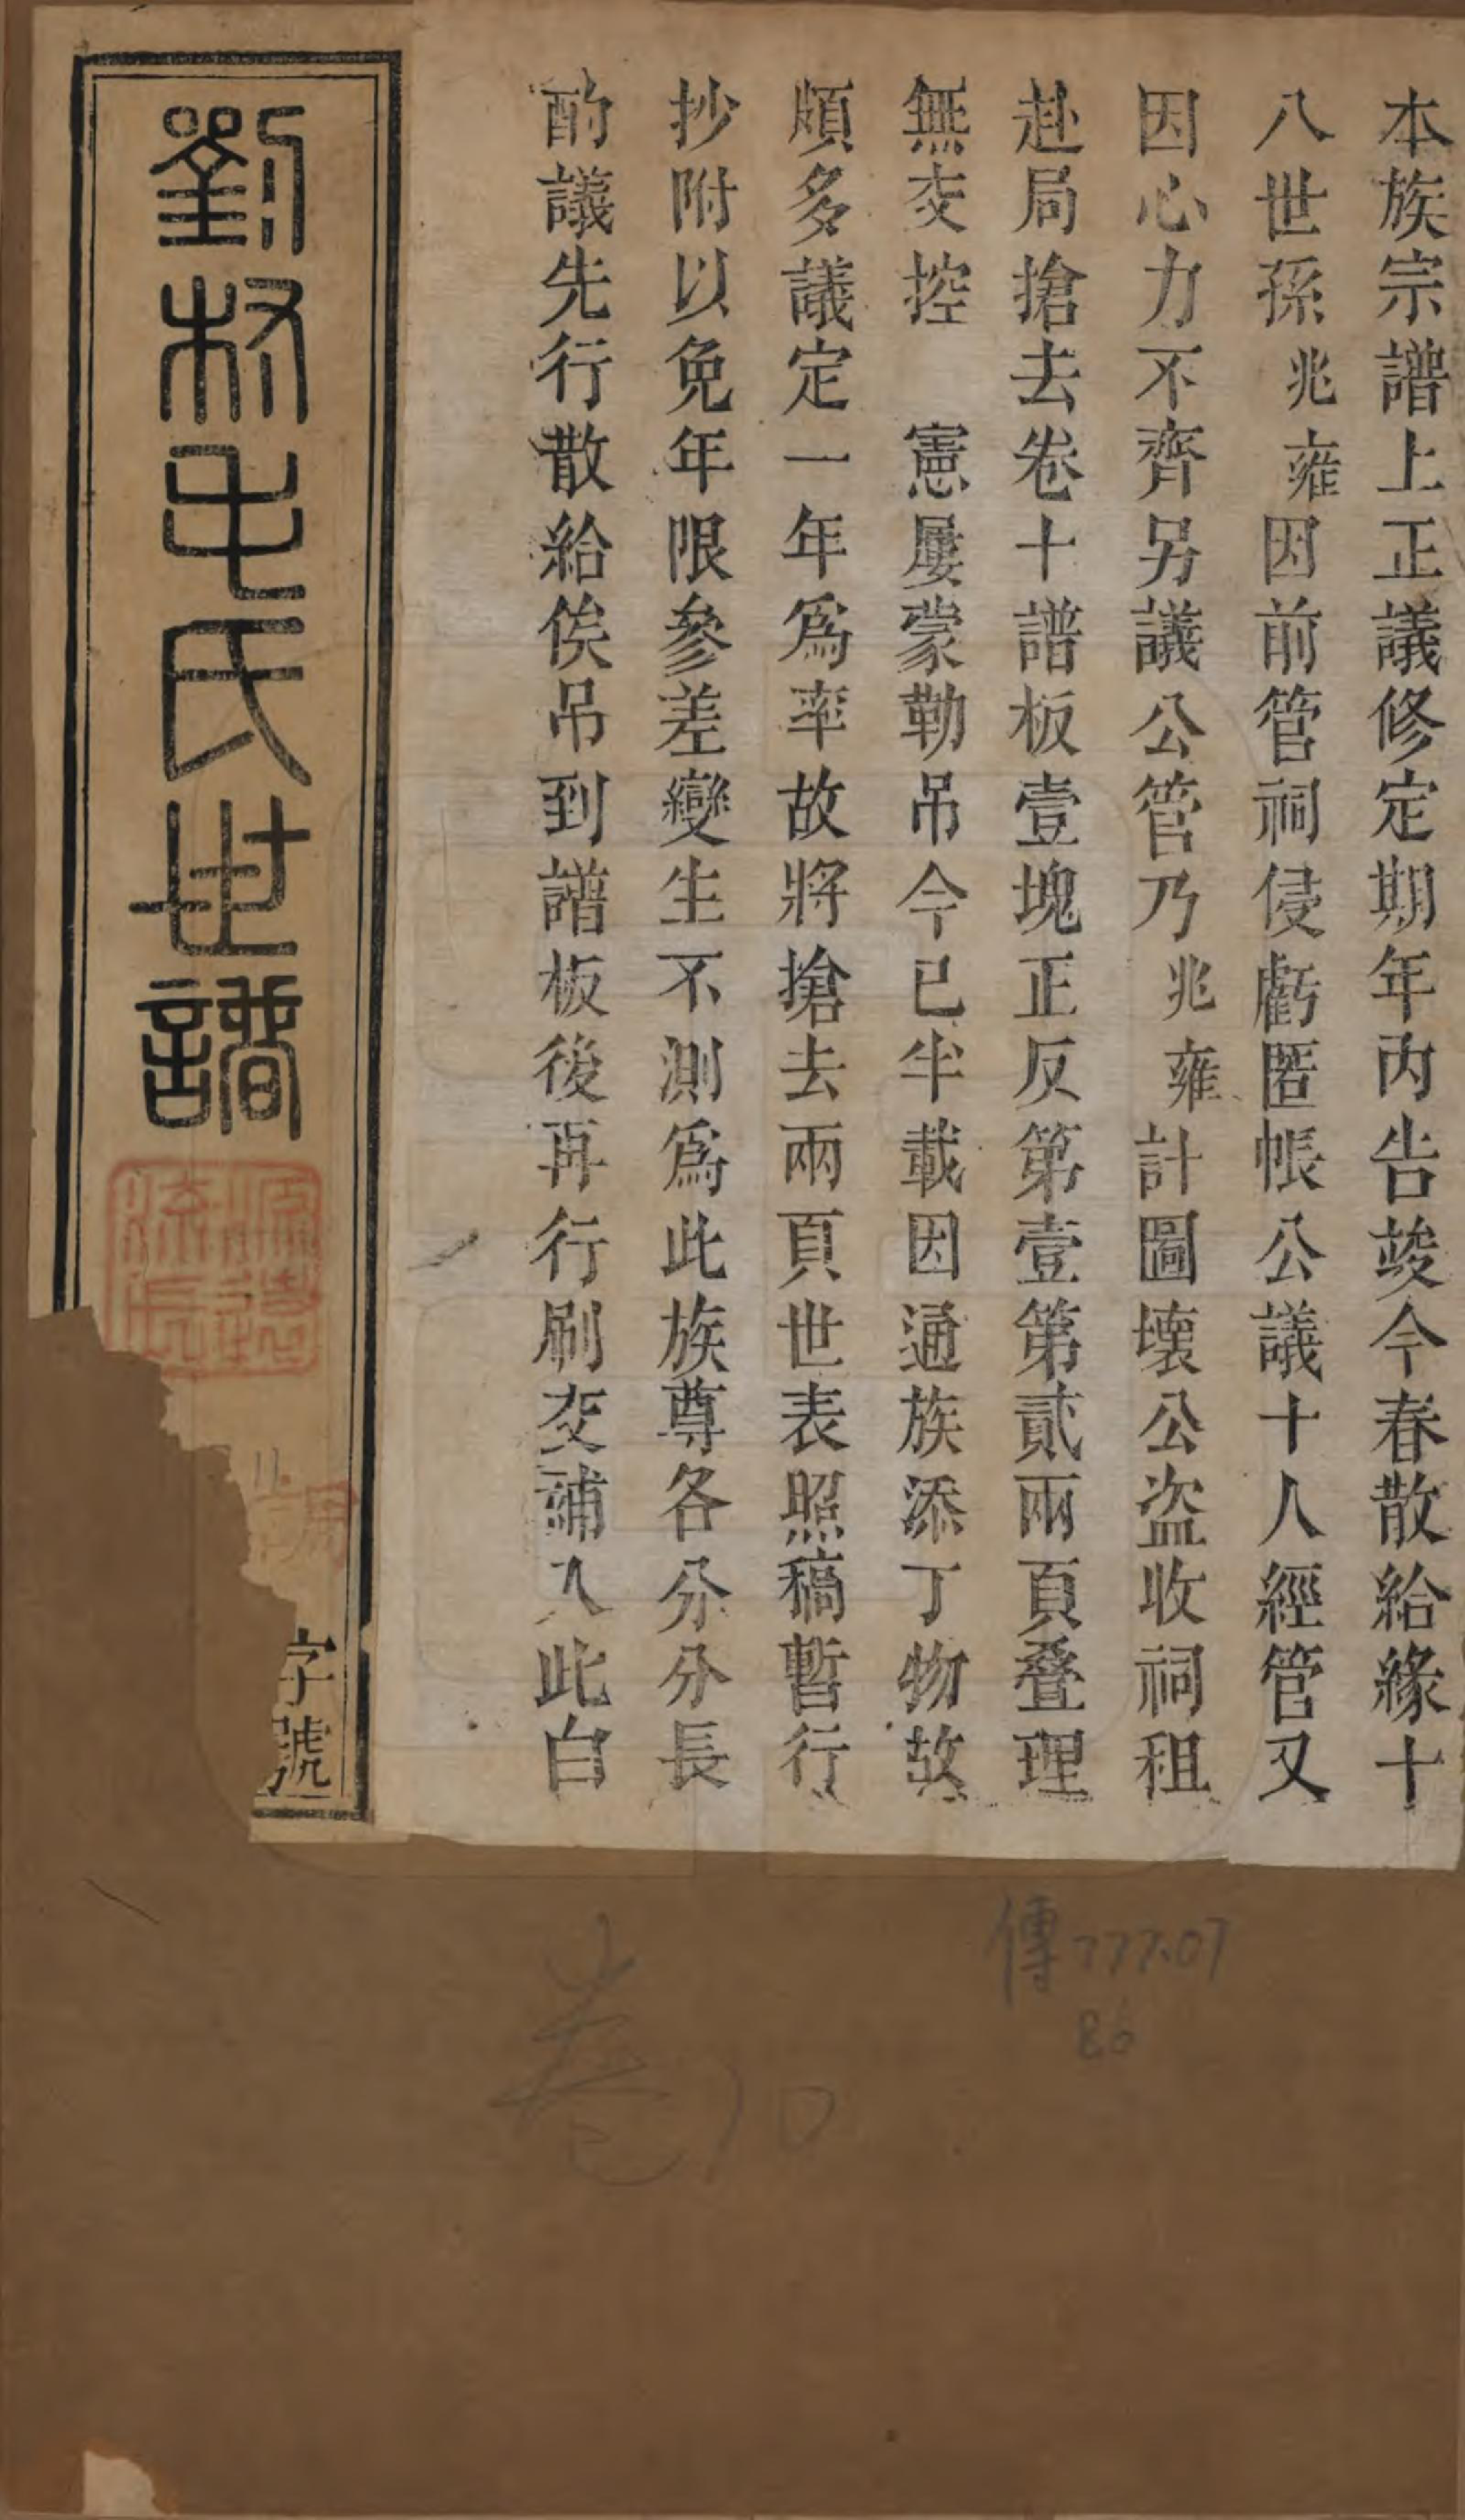 本族宗譜上正議修定期年內告竣今春散給緣十
八世孫兆雍因前管祠侵虧匿帳公議十人經管又
因心力不齊另議公管乃兆雍計圖壞公盜收祠租
赴局搶去卷十譜板壹塊正反第壹第貳兩頁叠理
無交控　憲屢蒙勒吊今已半載因通族添丁物故
頗多議定一年爲率故將搶去兩頁世表照稿暫行
抄附以免年限參差變生不測爲此族尊各分分長
酌議先行散給俟吊到譜板後再行刷交補入此白
劉林毛氏世譜
源遠流長
字號
傳777.07
86
卷10